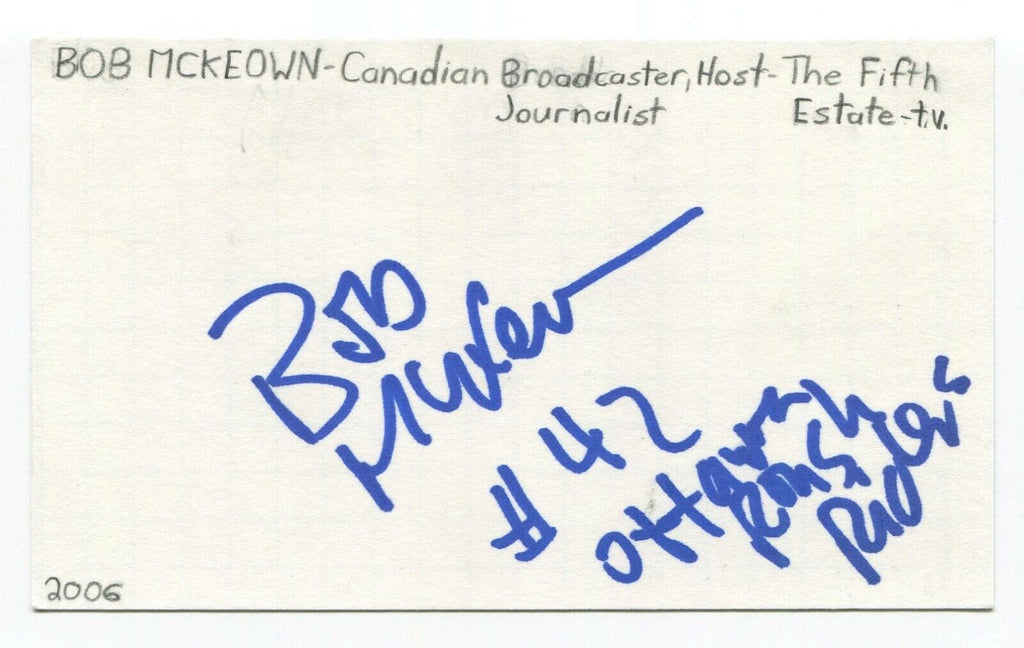 BOB MCKEOWN-Canadian Broadcaster, Host-The Fifth
Journalist Estate-t.v.
Bob
McKeown
#42
Ottawa
Rough
Riders
2006